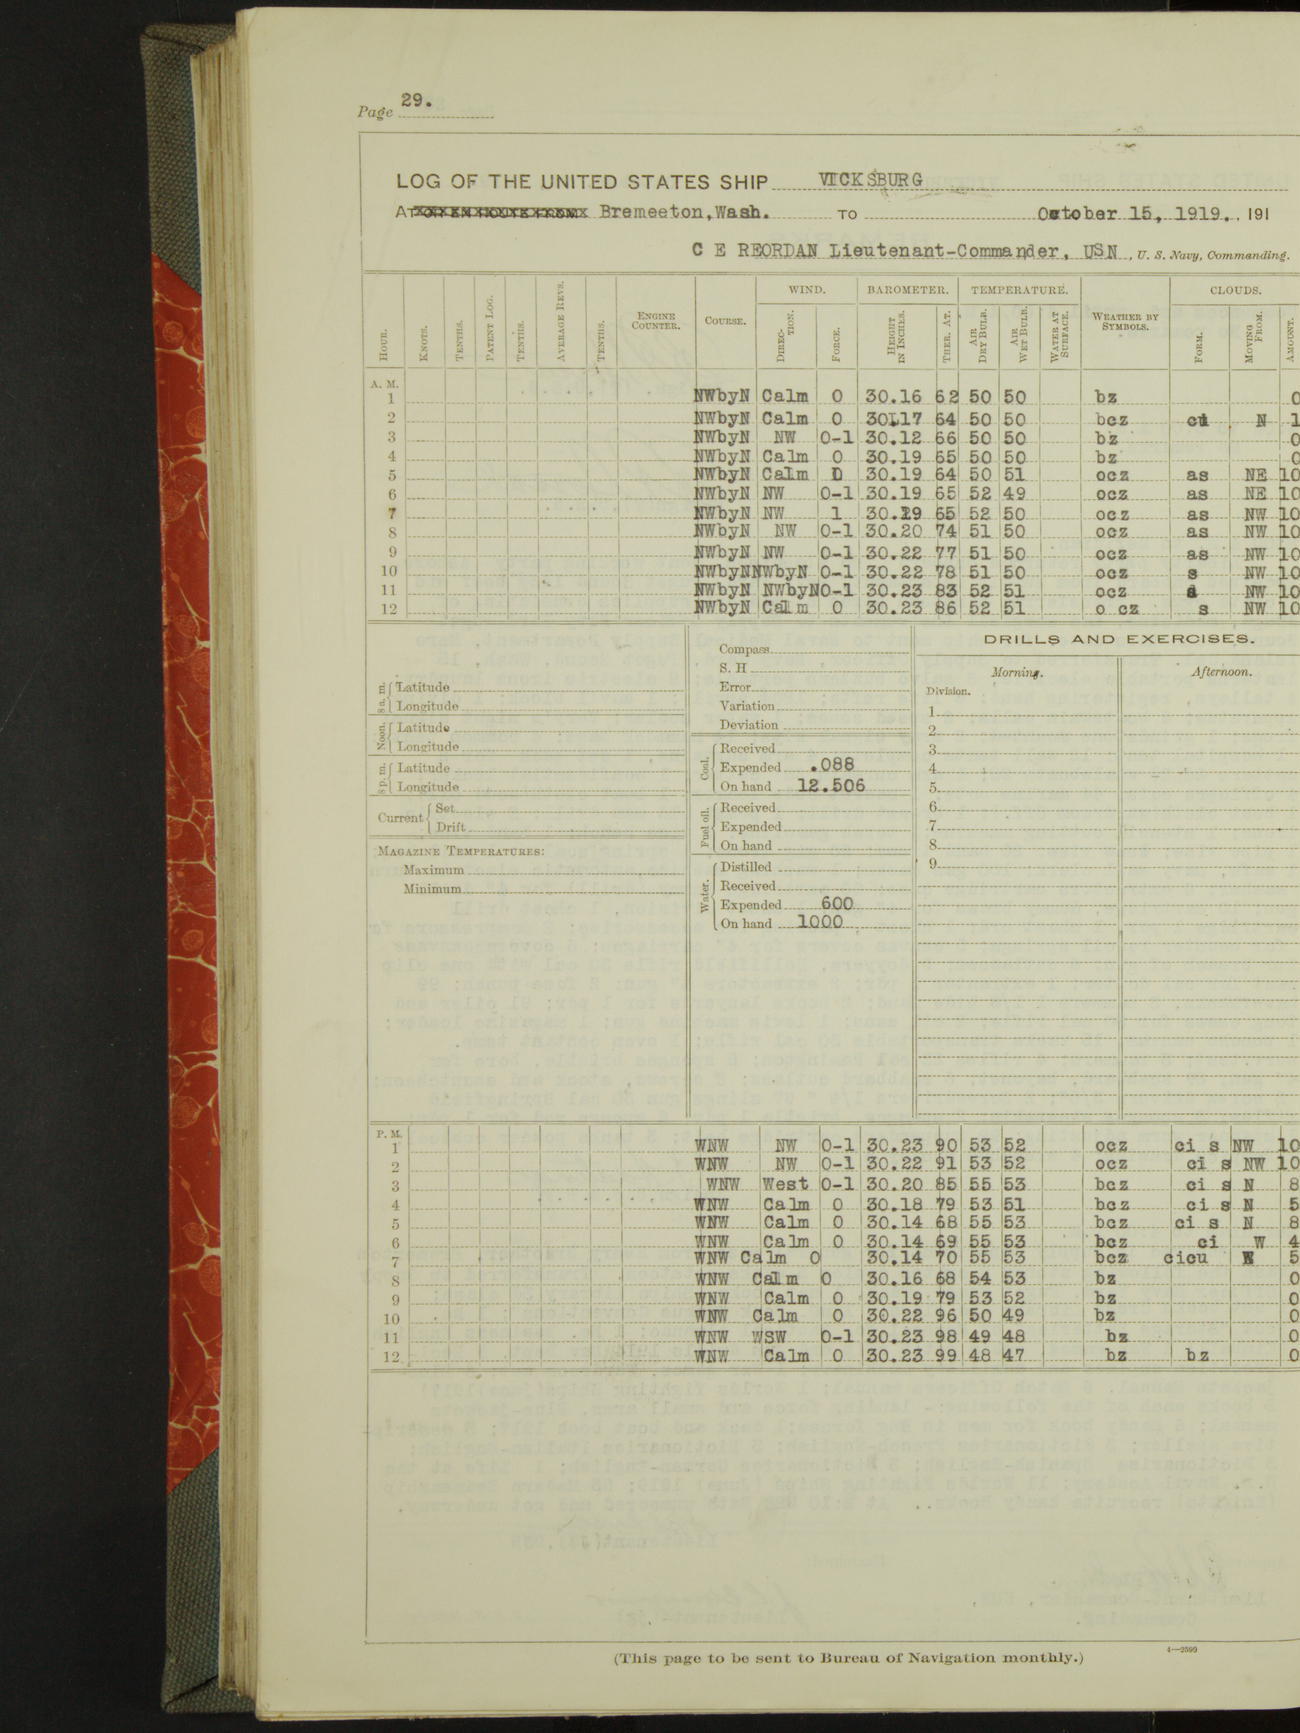 Page 29.
LOG OF THE UNITED STATES SHIP VICKSBURG
AT Bremeeton, Wash. TO October 15, 1919. , 191
C E REORDAN Lieutenant-Commander, USN , U. S. Navy, Commanding.
WIND. BAROMETER. TEMPERATURE. CLOUDS.
HOUR. KNOTS. TENTHS. PATENT LOG. TENTHS. AVERAGE REVS. TENTHS. ENGINE COUNTER. COURSE. DIREC-TION. FORCE. HEIGHT IN INCHES. THER. AT. AIR DRY BULB. AIR WET BULB. WATER AT SURFACE. WEATHER BY SYMBOLS. FORM. MOVING FROM. AMOUNT.
A. M.
1 NWbyN Calm 0 30.16 62 50 50 bz 0
2 NWbyN Calm 0 30.17 64 50 50 bcz ci N 1
3 NWbyN NW 0-1 30.12 66 50 50 bz 0
4 NWbyN Calm 0 30.19 65 50 50 bz 0
5 NWbyN Calm 0 30.19 64 50 51 ocz as NE 10
6 NWbyN NW 0-1 30.19 65 52 49 ocz as NE 10
7 NWbyN NW 1 30.19 65 52 50 ocz as NW 10
8 NWbyN NW 0-1 30.20 74 51 50 ocz as NW 10
9 NWbyN NW 0-1 30.22 77 51 50 ocz as NW 10
10 NWbyN NWbyN 0-1 30.22 78 51 50 ocz s NW 10
11 NWbyN NWbyN 0-1 30.23 83 52 51 ocz s NW 10
12 NWbyN Calm 0 30.23 86 52 51 o cz s NW 10
8 a. m. Latitude
Longitude
Noon. Latitude
Longitude
8 p. m. Latitude
Longitude
Current Set
Drift
MAGAZINE TEMPERATURES:
Maximum
Minimum
Compass
S. H
Error
Variation
Deviation
Coal. Received
Expended .088
On hand 12.506
Fuel oil. Received
Expended
On hand
Water. Distilled
Received
Expended 600
On hand 1000
DRILLS AND EXERCISES.
Morning. Afternoon.
Division.
1
2
3
4
5
6
7
8
9
P. M.
1 WNW NW 0-1 30.23 90 53 52 ocz ci s NW 10
2 WNW NW 0-1 30.22 91 53 52 ocz ci s NW 10
3 WNW West 0-1 30.20 85 55 53 bcz ci s N 8
4 WNW Calm 0 30.18 79 53 51 bcz ci s N 5
5 WNW Calm 0 30.14 68 55 53 bcz ci s N 8
6 WNW Calm 0 30.14 69 55 53 bcz ci W 4
7 WNW Calm 0 30.14 70 55 53 bcz cicu 5
8 WNW Calm 0 30.16 68 54 53 bz 0
9 WNW Calm 0 30.19 79 53 52 bz 0
10 WNW Calm 0 30.22 96 50 49 bz 0
11 WNW WSW 0-1 30.23 98 49 48 bz 0
12 WNW Calm 0 30.23 99 48 47 bz bz 0
(This page to be sent to Bureau of Navigation monthly.)
4—2599